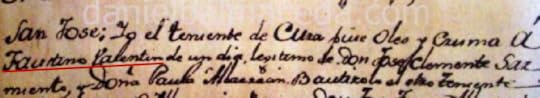 San Jose; Yo el teniente de Cura puse Oleo y Crisma á
Faustino Valentin de un dia, legitimo de Don Jose Clemente Sar
miento, y Doña Paula Albarracin. Bautizolo el otro Teniente